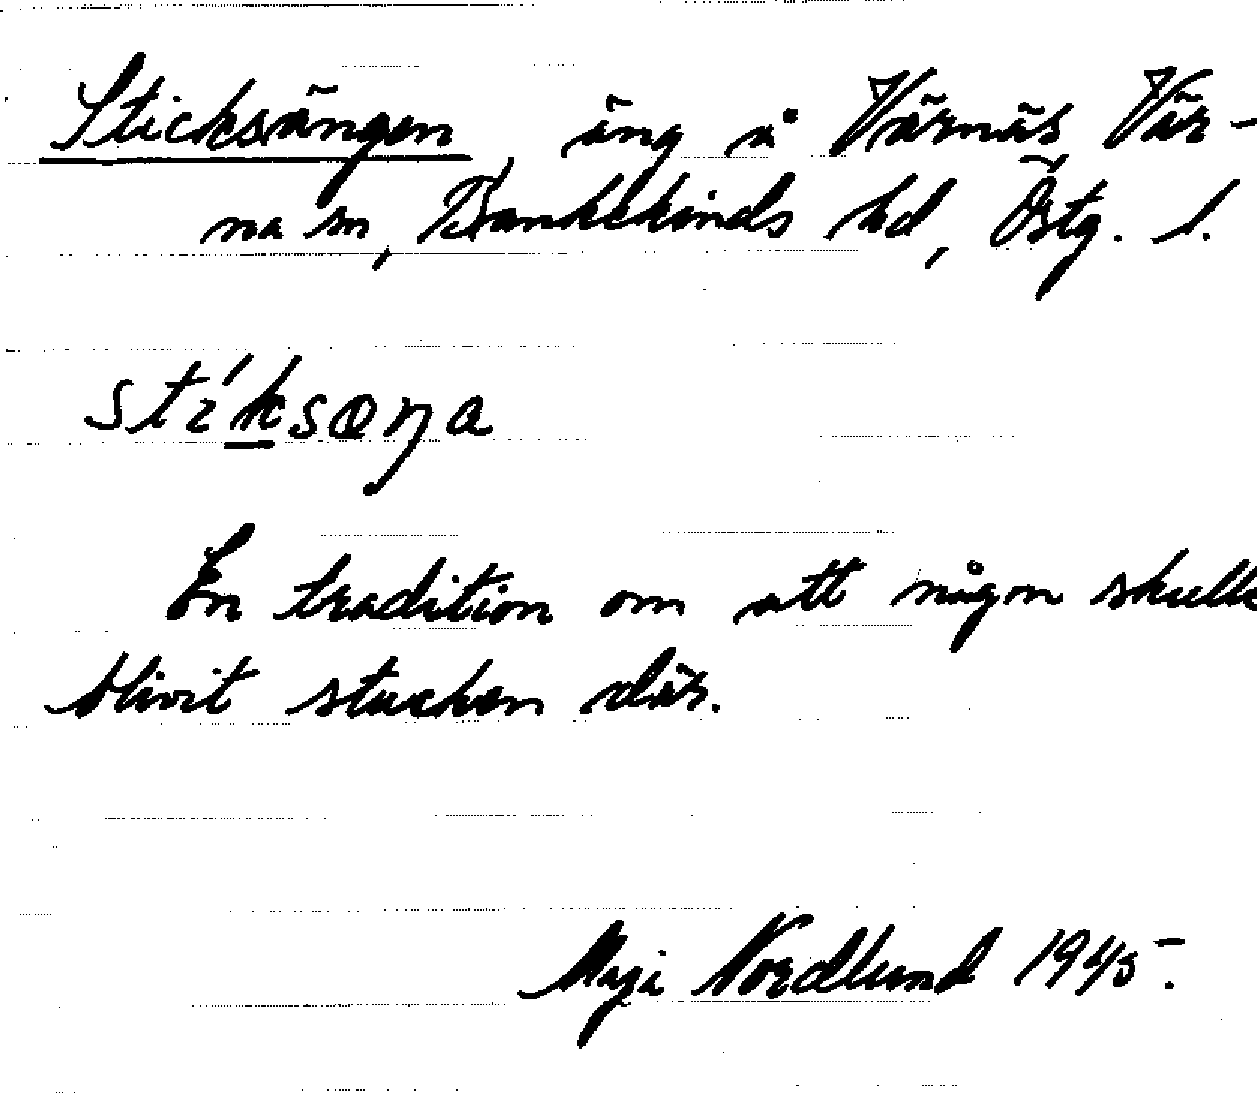 Sticksängen, äng å Värnäs, Vär-
na sn, Bankekinds hd, Östg. l.
stíksæŋa
En tradition om att någon skulle
blivit stucken där.
Maja Nordlund 1945.